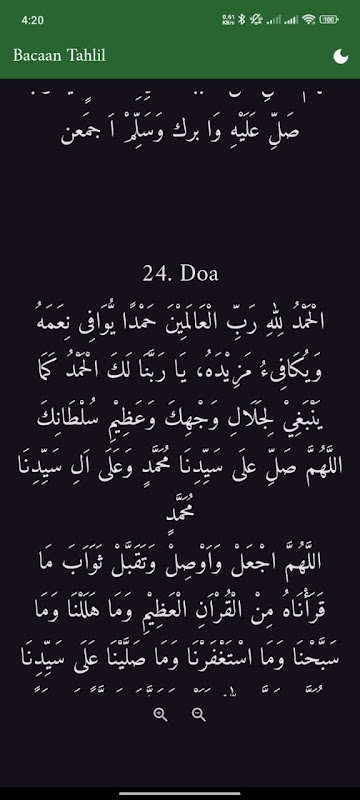 4:20
0,61 KB/s
100
Bacaan Tahlil
صَلِّ عَلَيْهِ وَا برك وَسَلِّمْ اَ جمَعن
24. Doa
الْحَمْدُ لِلهِ رَبِّ الْعَالَمِيْنَ حَمْدًا يُّوَافِى نِعَمَهُ
وَيُكَافِىءُ مَزِيْدَهُ، يَا رَبَّنَا لَكَ الْحَمْدُ كَمَا
يَنْبَغِيْ لِجَلَالِ وَجْهِكَ وَعَظِيْمِ سُلْطَانِكَ
اللَّهُمَّ صَلِّ علَى سَيِّدِنَا مُحَمَّدٍ وَعَلَى اَلِ سَيِّدِنَا
مُحَمَّدٍ
اللَّهُمَّ اجْعَلْ وَاَوْصِلْ وَتَقَبَّلْ ثَوَابَ مَا
قَرَأْنَاهُ مِنْ الْقُرْاَنِ الْعَظِيْمِ وَمَا هَلَلْنَا وَمَا
سَبَّحْنَا وَمَا اسْتَغْفَرْنَا وَمَا صَلَّيْنَا عَلَى سَيِّدِنَا